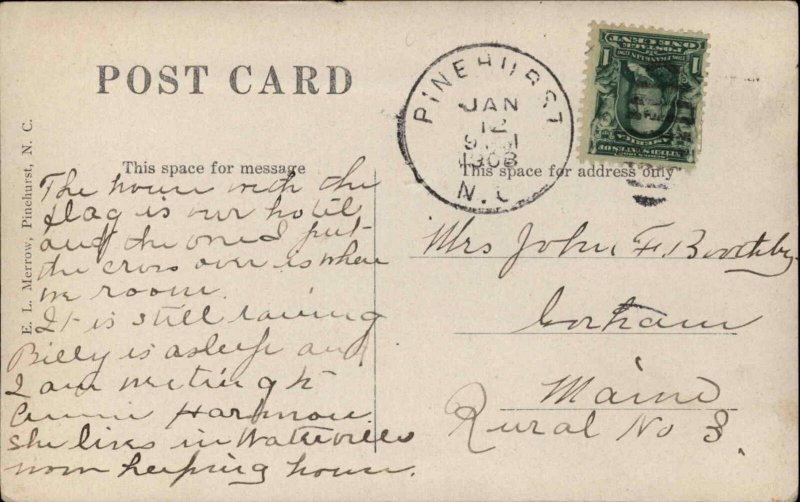 POST CARD
PINEHURST
JAN
12
1908
N. C.
1
ONE CENT
E. L. Merrow, Pinehurst, N. C.
This space for message
This space for address only
The house with the
flag is our hotel
and the one I put
the cross over is where
we room.
It is still raining
Billy is asleep and
I am writing to
Annie Harmon
she lives in Waterville
now keeping house.
Mrs John F. Boothby
Gorham
Maine
Rural No 3.